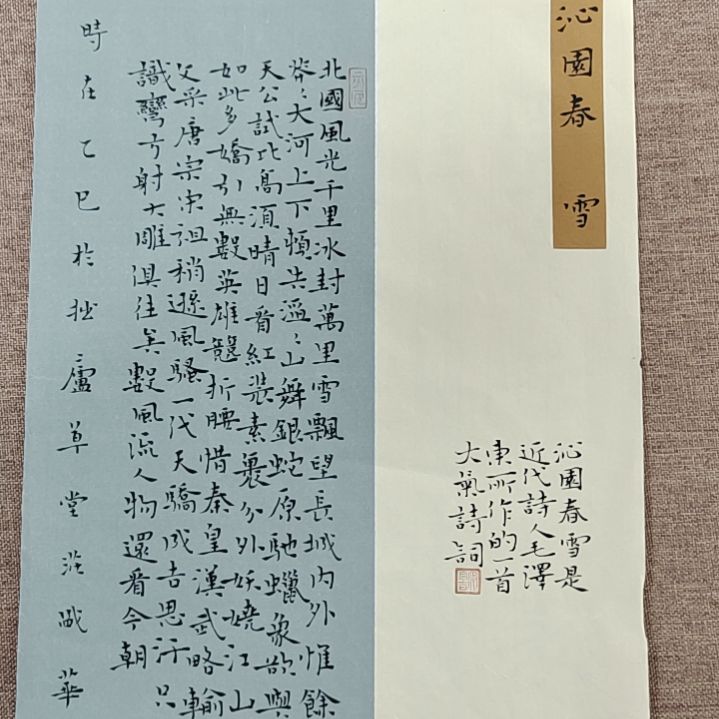 沁園春 雪
沁園春雪是
近代詩人毛澤
東所作的一首
大氣詩詞
北國風光千里冰封萬里雪飄望長城內外惟餘
莽々大河上下頓失滔々山舞銀蛇原馳蠟象欲與
天公試比高須晴日看紅裝素裹分外妖嬈江山
如此多嬌引無數英雄競折腰惜秦皇漢武略輸
文采唐宗宋祖稍遜風騷一代天驕成吉思汗只
識彎弓射大雕俱往矣數風流人物還看今朝
時在乙巳於拙廬草堂莊華